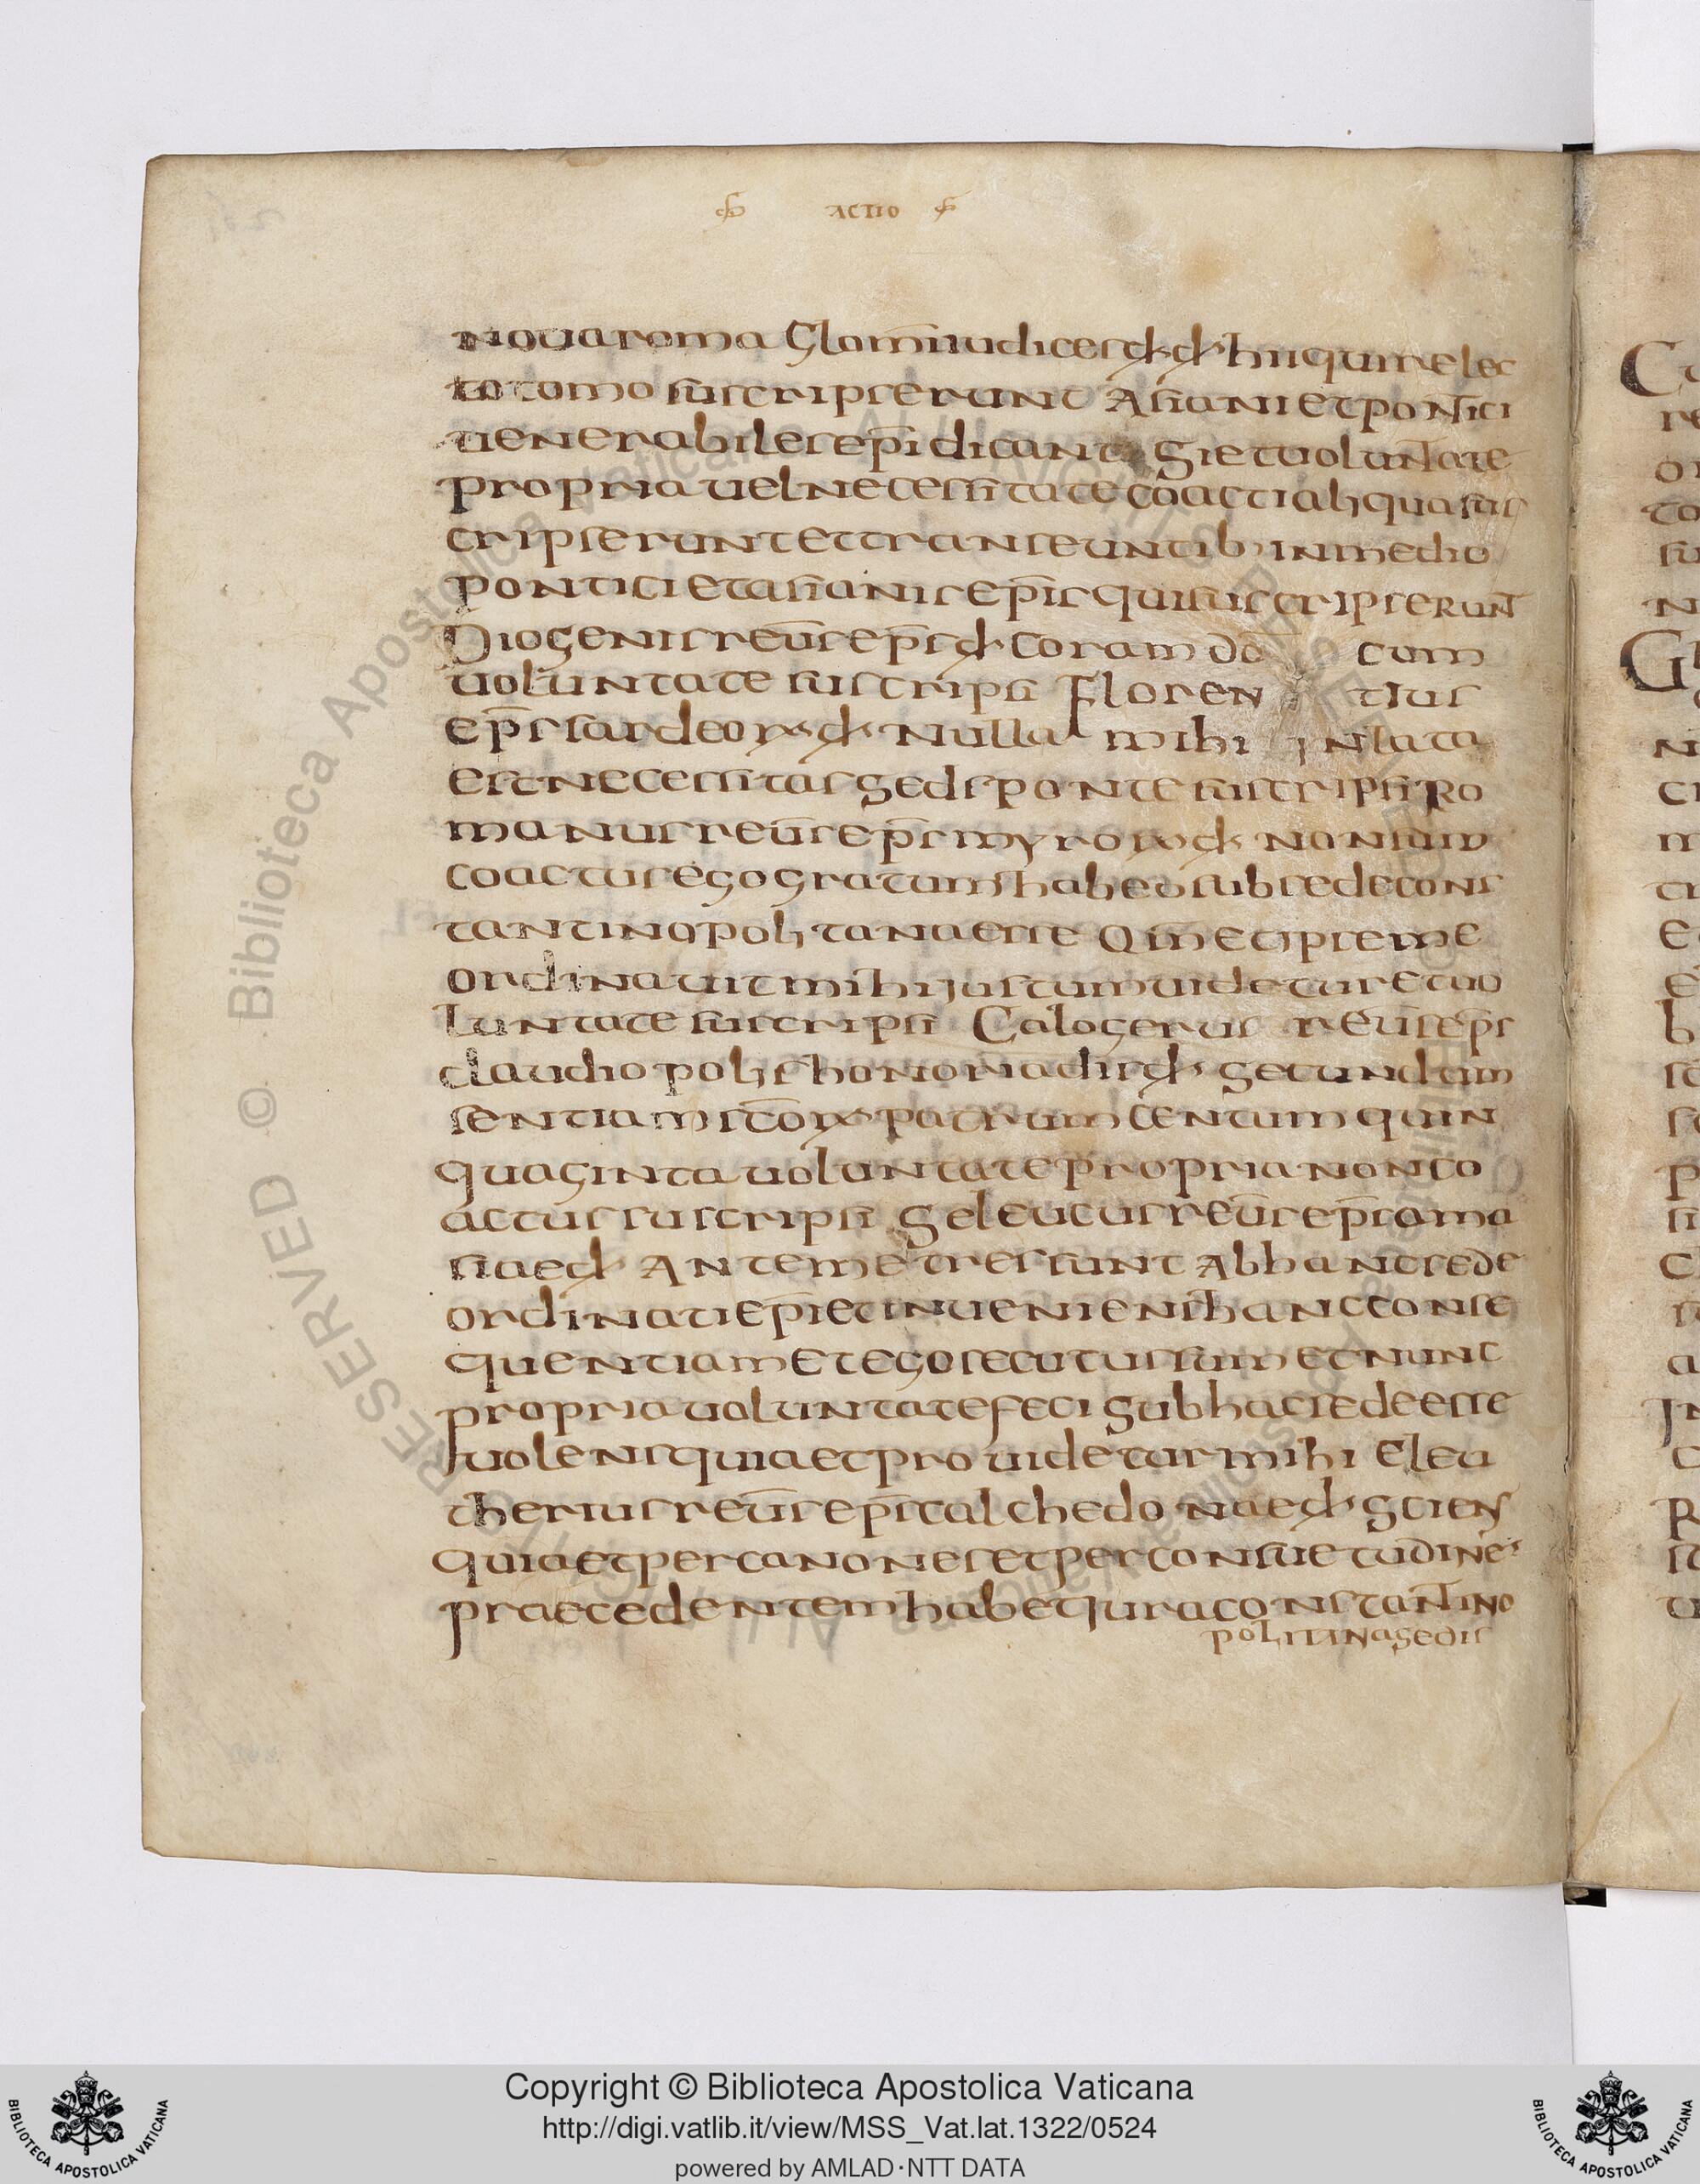 ACTIO
noua roma Glom̄ iudices dd hii qui in e lec
to tomo suscripserunt Asiani et ponsici
uenerabiles ep̄i dicant si et uoluntate
propria uel necessitate coacti aliqua sus
cripserunt et transeuntib; in medio
pontici et asianis ep̄is qui suscripserunt
Diogenis reū s ep̄s d coram dō cum
uoluntate suscripsi Floren tius
ep̄s sardeorx d Nulla mihi inlata
est necessitas sed sponte suscripsi Ro
manus reūs ep̄s myrorx d non sum
coactus ego gratum habeo sub sede cons
tantinopolitana esse Qm̄ et ipse me
ordinauit mihi iustum uidetur et uo
luntate suscripsi Calogerus reūs ep̄s
claudiopolis honoriadis d secundum
sentiam scōrx patrum centum quin
quaginta uoluntate propria non co
actus suscripsi Seleucus reūs ep̄s ama
siae d Ante me tres sunt Ab hanc sede
ordinati ep̄i et inueniens hanc conse
quentiam et ego secutus sum et nunc
propria uoluntate feci Sub hac sede esse
uolens quia et pro uidetur mihi Eleu
therius reūs ep̄s calchedonae d sciens
quia et per canones et per consuetudine
praecedentem habet iura constantino
politana sedis
Copyright © Biblioteca Apostolica Vaticana
http://digi.vatlib.it/view/MSS_Vat.lat.1322/0524
powered by AMLAD·NTT DATA
BIBLIOTECA APOSTOLICA VATICANA
BIBLIOTECA APOSTOLICA VATICANA